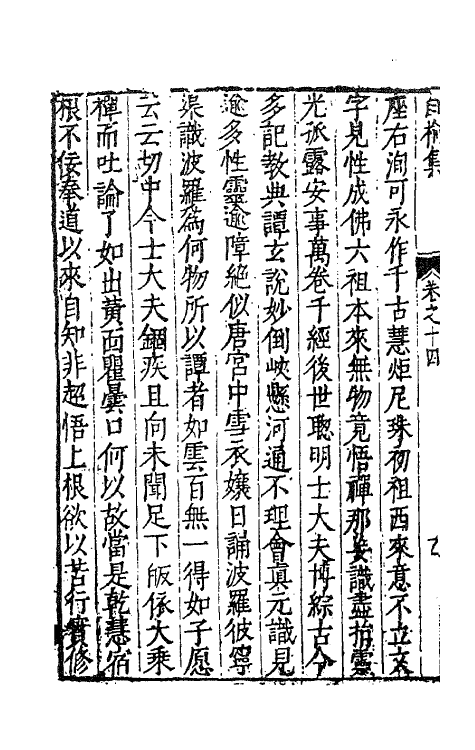 白榆集
卷之十四
七
座右洵可永作千古慧炬尼珠初祖西來意不立文
字見性成佛六祖本來無物竟悟禪那妄識盡抬靈
光派露安事萬卷千經後世聰明士大夫博綜古今
多記教典譚玄說妙倒峽懸河通不理會真元識見
逾多性靈逾障絕似唐宮中雪衣孃日誦波羅彼寧
渠識波羅為何物所以譚者如雲百無一得如子愿
云云切中今士大夫錮疾且向未聞足下皈依大乘
禪而吐論了如出黃面瞿曇口何以故當是乾慧宿
根不佞奉道以來自知非超悟上根欲以苦行實修